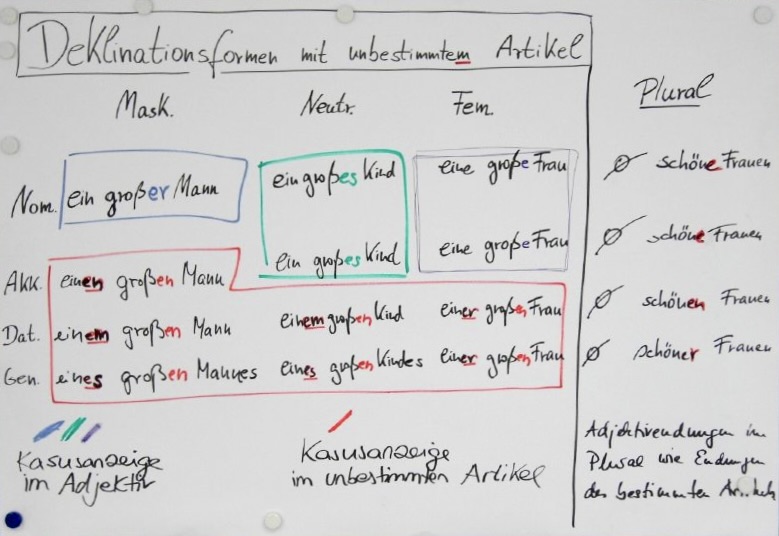 Deklinationsformen mit unbestimmtem Artikel
Mask. Neutr. Fem. Plural
Nom. ein großer Mann ein großes Kind eine große Frau ∅ schöne Frauen
Akk. einen großen Mann ein großes Kind eine große Frau ∅ schöne Frauen
Dat. einem großen Mann einem großen Kind einer großen Frau ∅ schönen Frauen
Gen. eines großen Mannes eines großen Kindes einer großen Frau ∅ schöner Frauen
Kasusanzeige
im Adjektiv
Kasusanzeige
im unbestimmten Artikel
Adjektivendungen im
Plural wie Endungen
des bestimmten